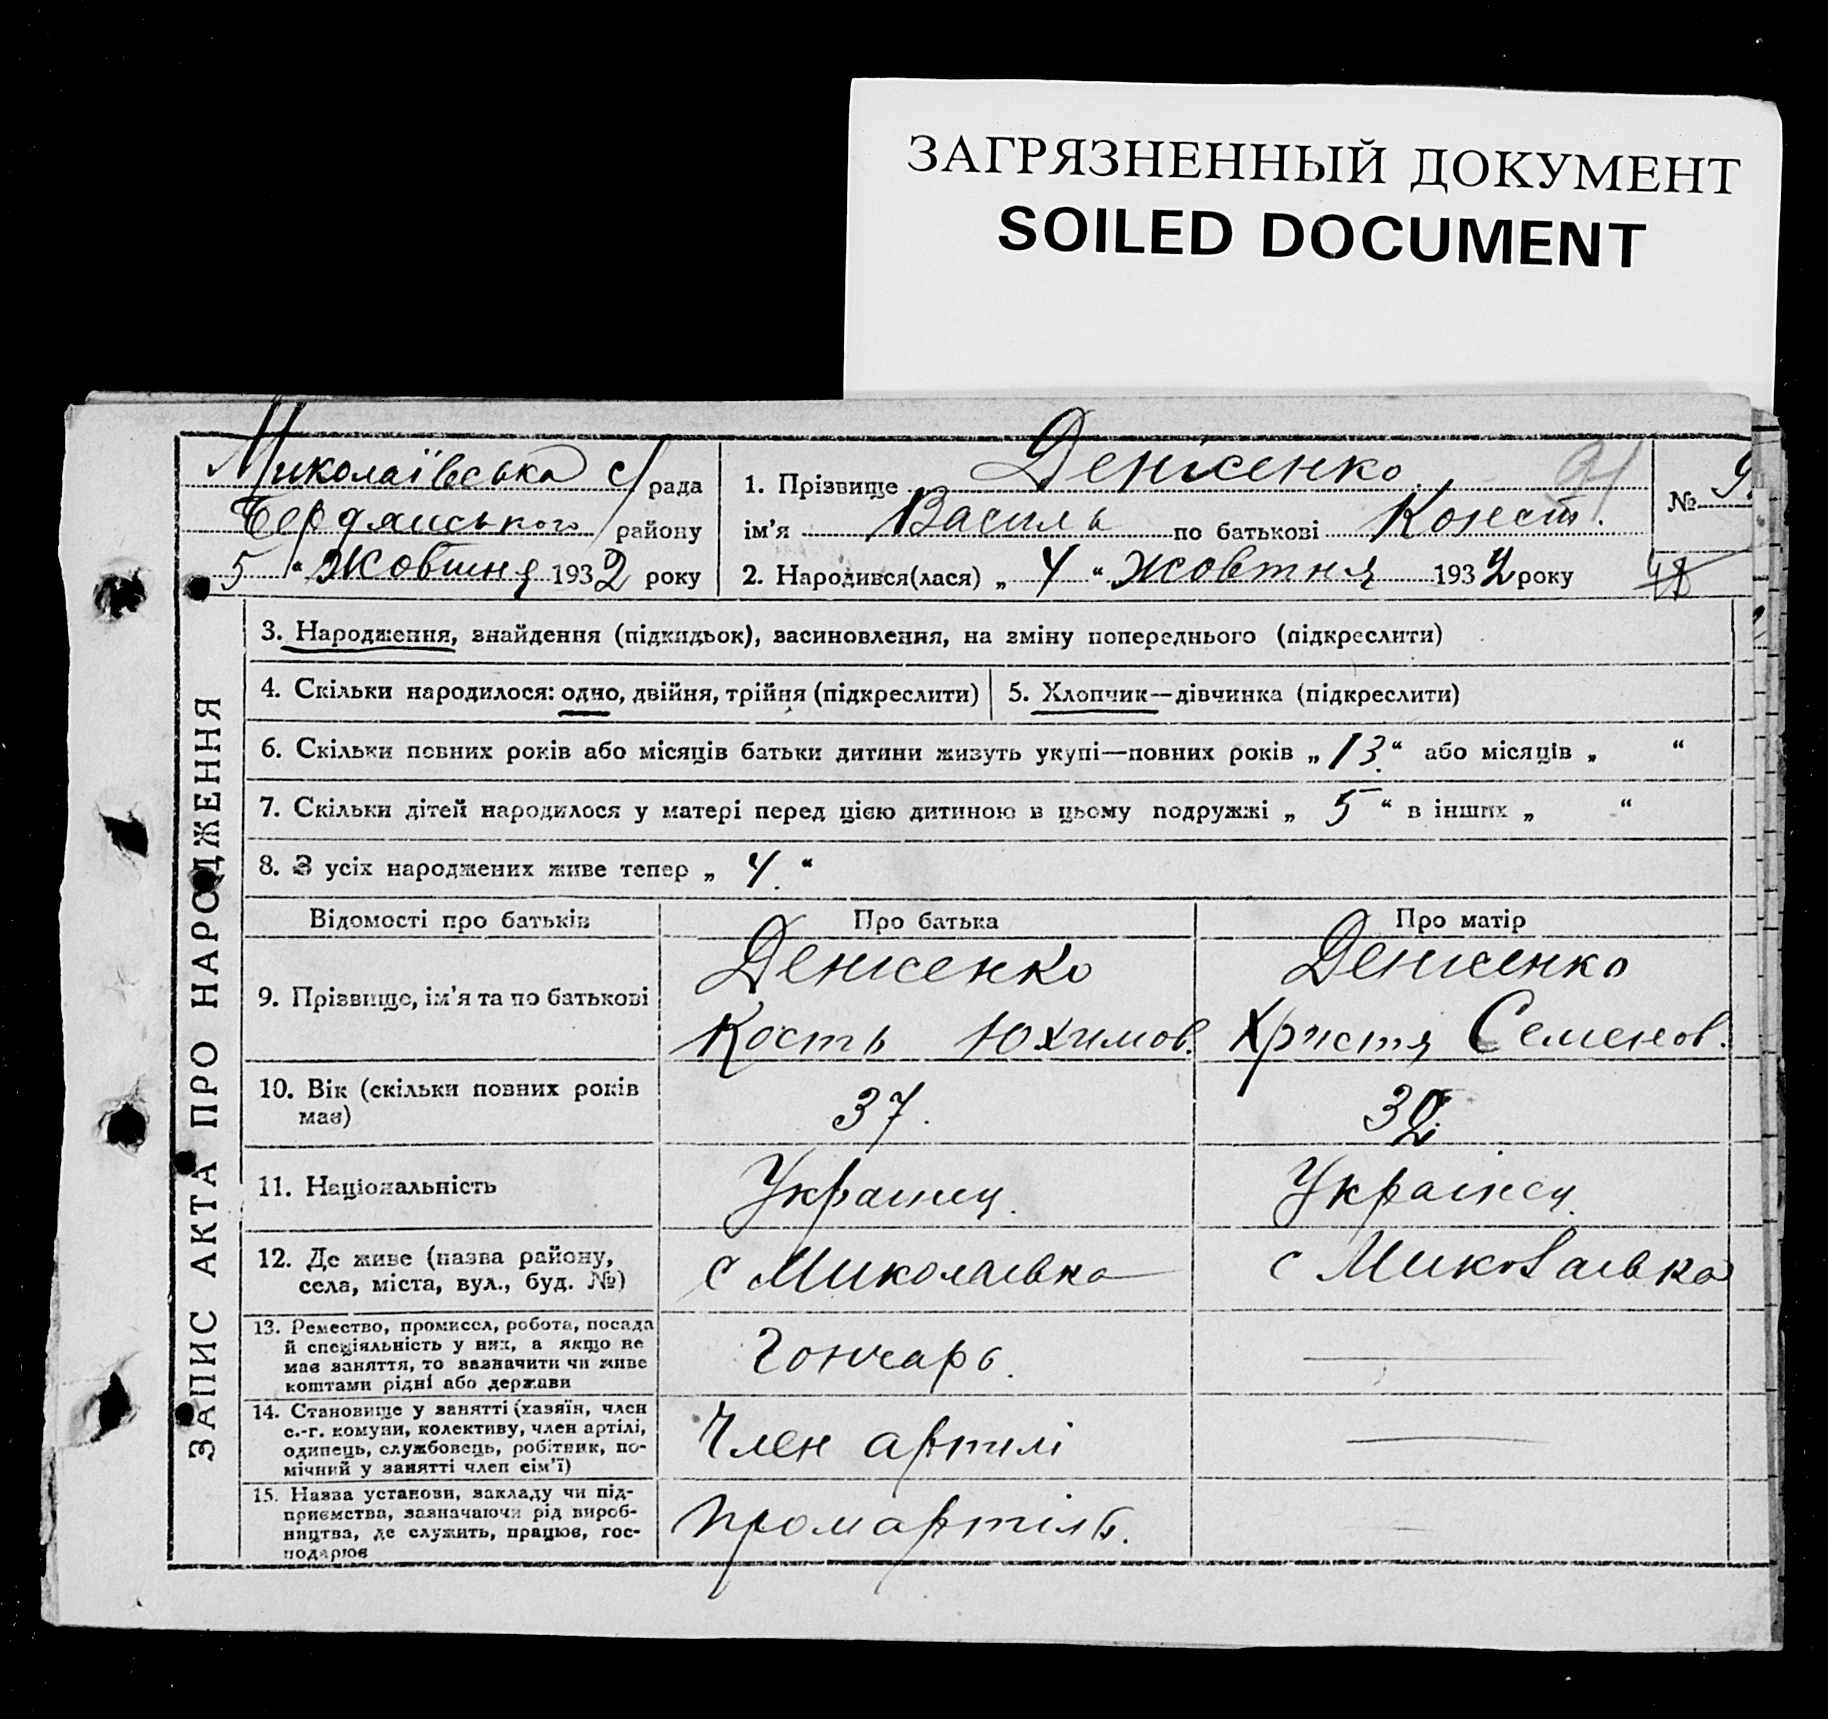 ЗАГРЯЗНЕННЫЙ ДОКУМЕНТ
SOILED DOCUMENT
Миколаївська с/рада
Бердянського району
5 " Жовтня 1932 року
1. Прізвище Денженко
ім'я Василь по батькові Конст.
2. Народився(лася) „ 4 " Жовтня 1932 року
№ 9
ЗАПИС АКТА ПРО НАРОДЖЕННЯ
3. Народження, знайдення (підкидьок), засиновлення, на зміну попереднього (підкреслити)
4. Скільки народилося: одно, двійня, трійня (підкреслити)
5. Хлопчик—дівчинка (підкреслити)
6. Скільки повних років або місяців батьки дитини живуть укупі—повних років „ 13 " або місяців „ "
7. Скільки дітей народилося у матері перед цією дитиною в цьому подружжі „ 5 " в інших „ "
8. З усіх народжених живе тепер „ 4. "
Відомості про батьків
Про батька
Про матір
9. Прізвище, ім'я та по батькові
Денженко
Кость Юхимов.
Денженко
Христя Семенов.
10. Вік (скільки повних років
має)
37.
11. Національність
Украинц.
Українц.
12. Де живе (назва району,
села, міста, вул., буд. №)
с Миколаевка
с Миколаевка
13. Ремество, промисел, робота, посада
й спеціяльність у них, а якщо не
має заняття, то зазначити чи живе
коштами рідні або держави
Гончарь.
14. Становище у занятті (хазяїн, член
с.-г. комуни, колективу, член артілі,
одинець, службовець, робітник, по-
мічний у занятті член сім'ї)
Член артилі
15. Назва установи, закладу чи під-
приємства, зазначаючи рід вироб-
ництва, де служить, працює, гос-
подарює
Промартіль.